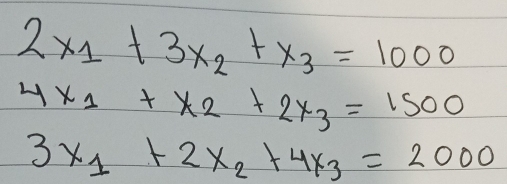 2x₁ + 3x₂ + x₃ = 1000
4x₁ + x₂ + 2x₃ = 1500
3x₁ + 2x₂ + 4x₃ = 2000